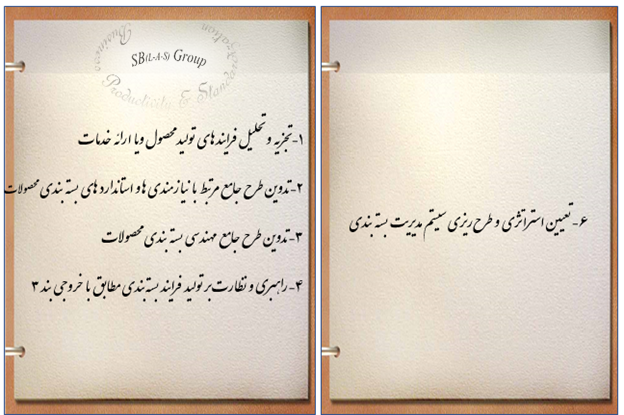 SB(L-A-S) Group
Business
Productivity & Standardization
۱-تجزیه و تحلیل فرایندهای تولید محصول ویا ارائه خدمات
۲-تدوین طرح جامع مرتبط با نیازمندی ها و استاندارد های بسته بندی محصولات
۳-تدوین طرح جامع مهندسی بسته بندی محصولات
۴-راهبری و نظارت بر تولید فرایند بسته بندی مطابق با خروجی بند ۳
۶-تعیین استراتژی و طرح ریزی سیستم مدیریت بسته بندی